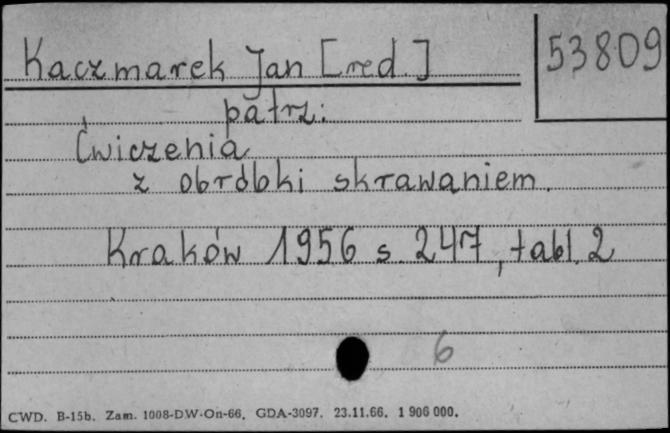 53809
Kaczmarek Jan [red.]
patrz:
Ćwiczenia
z obróbki skrawaniem.
Kraków 1956 s. 247, tabl. 2
6
CWD. B-15b. Zam. 1008-DW-On-66. GDA-3097. 23.11.66. 1 906 000.